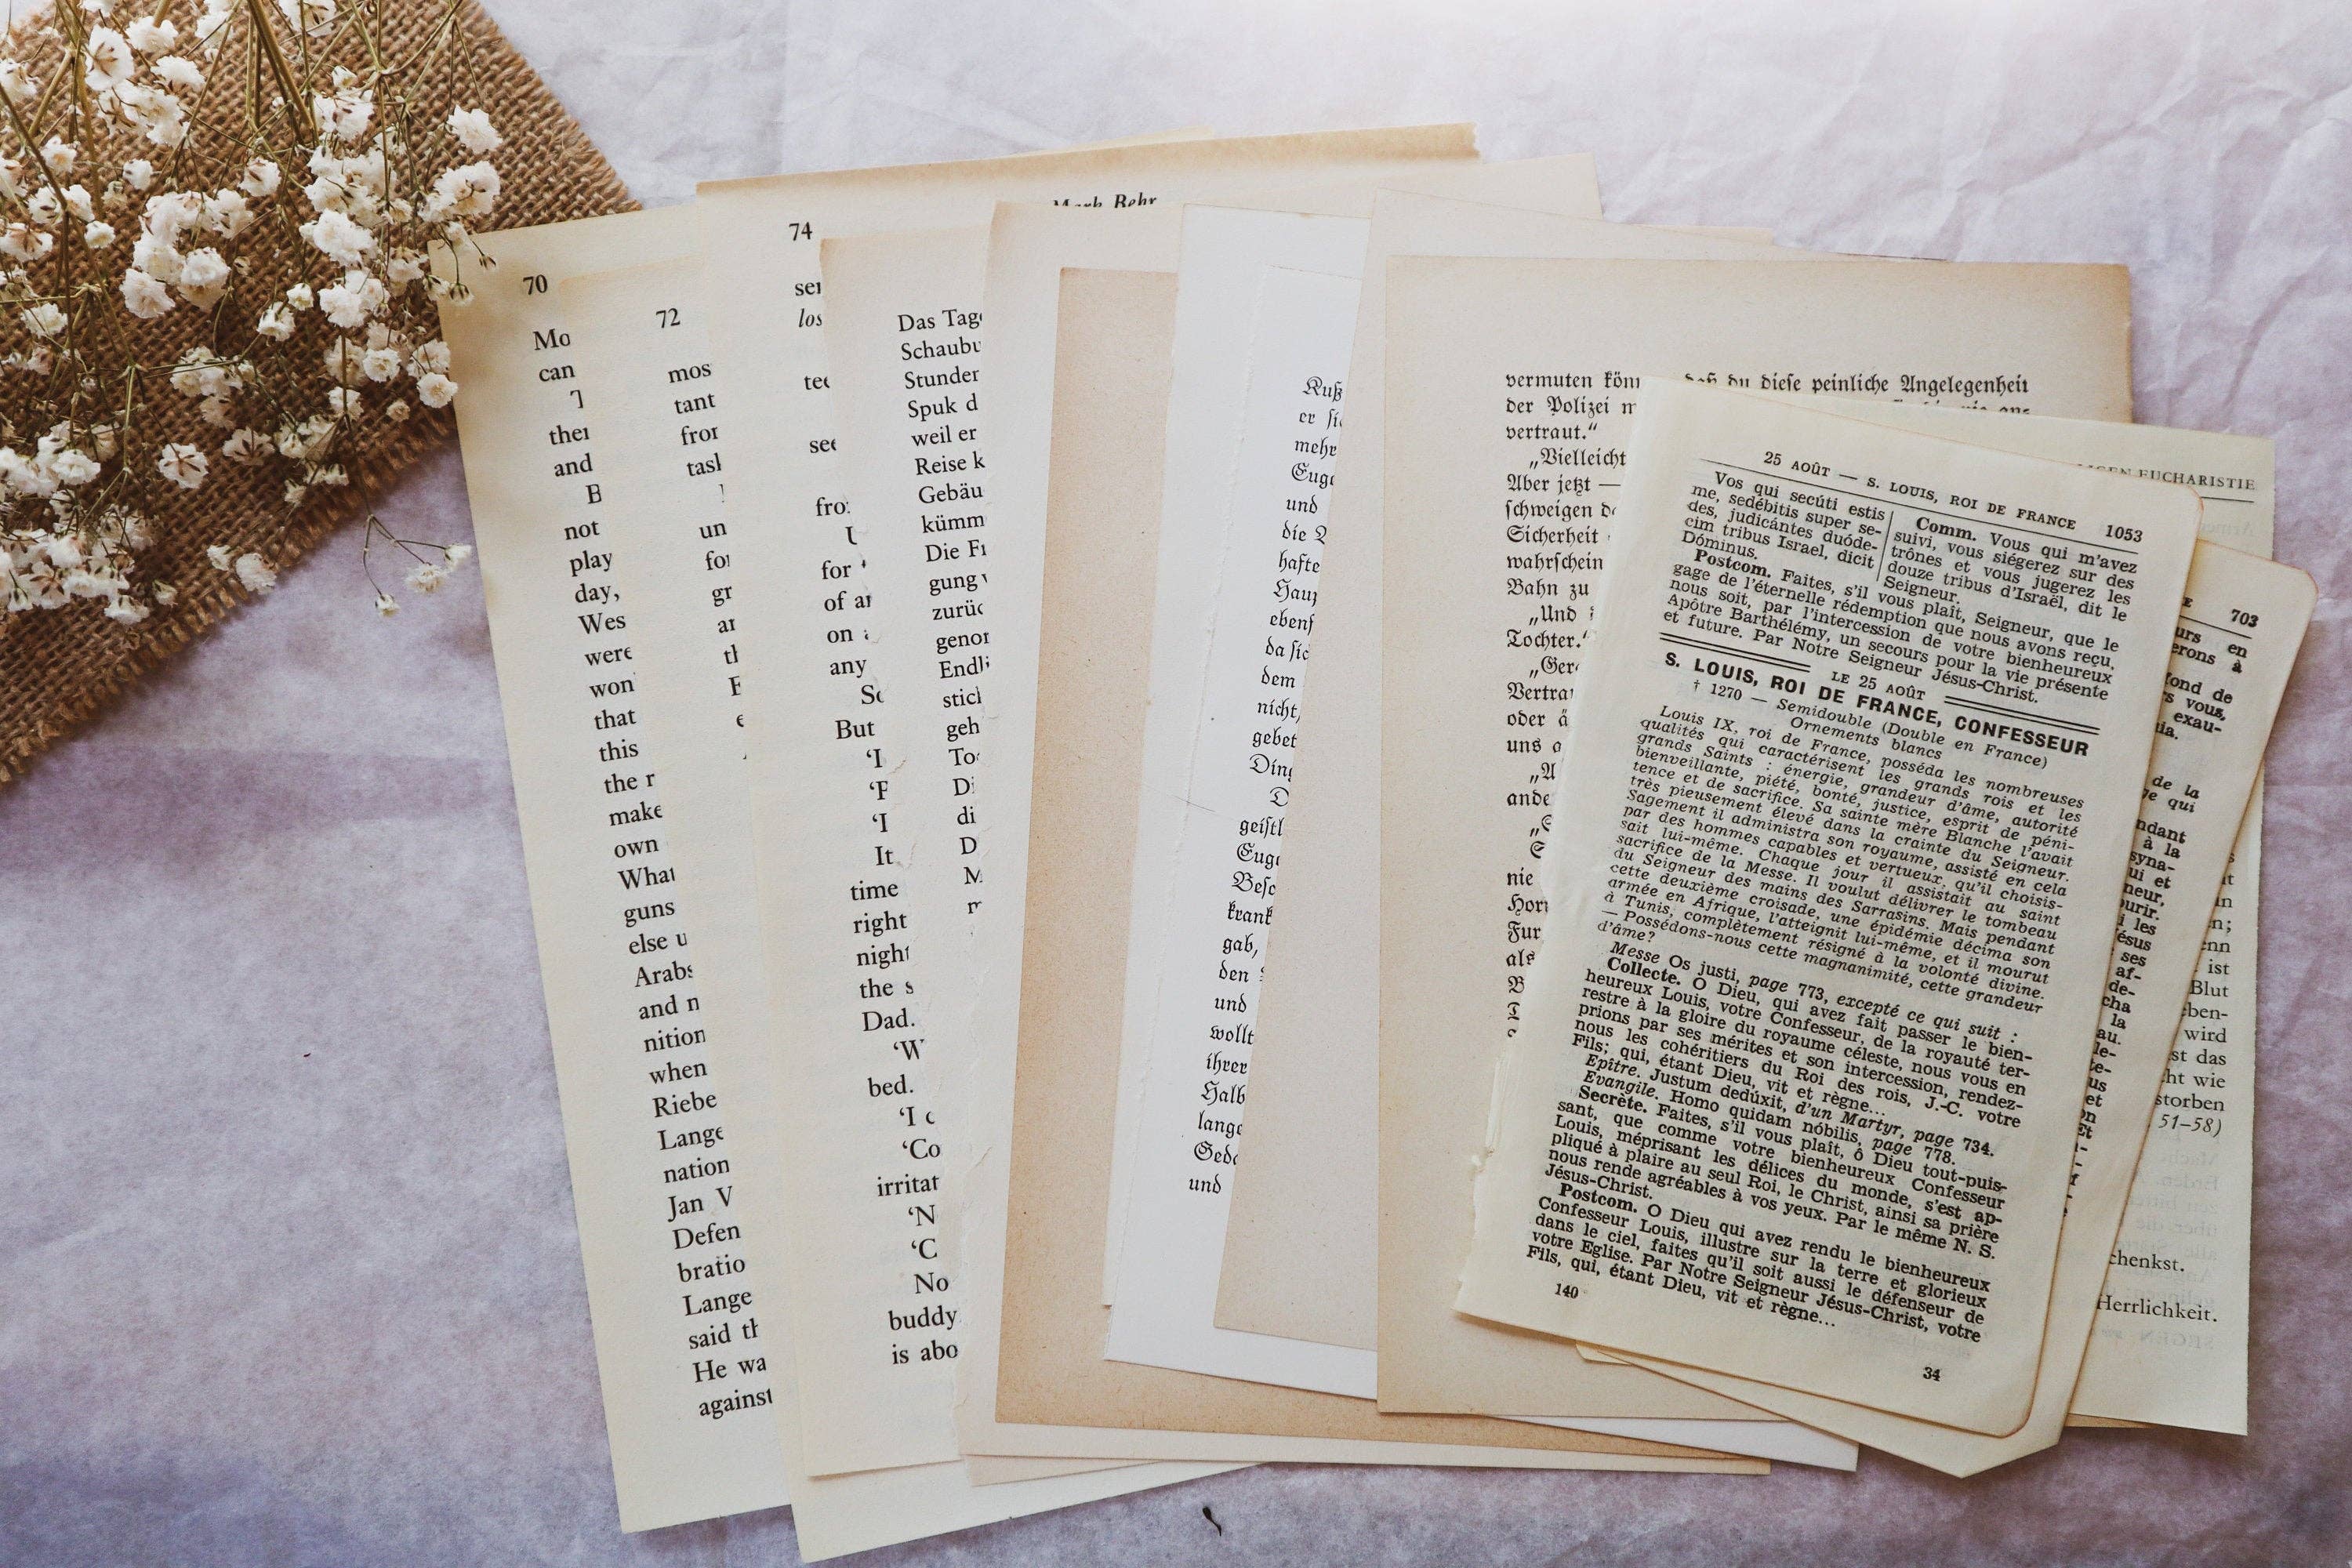 70
Mo
can
and
not
play
day,
Wes
were
won
that
this
the r
make
own
What
guns
else u
Arabs
and n
nition
when
Riebe
Lange
nation
Jan V
Defen
bratio
Lange
said th
He wa
against
72
mos
tant
un
gr
74
Mark Behr
ser
los
for
of ar
on
any
But
‘I
It
time
right
night
the s
Dad.
‘W
bed.
‘I c
‘Co
irritat
‘N
‘C
No
buddy
is abo
Das Tage
Schaubu
Stunden
Spuk d
weil er
Reise k
Gebäu
kümm
Die Fr
gung v
zurüc
genor
Endli
stich
geh
To
Di
di
D
M
Kuß
er si
mehr
Euge
und
die
hafte
Hau
ebens
da sic
dem
nicht,
gebet
Ding
D
geistl
Euge
Besc
krank
gab,
den
und
wollt
ihrer
Halb
lange
Geda
und
vermuten könn daß du diese peinliche Angelegenheit
der Polizei m
vertraut.“
„Vielleicht
Aber jetzt —
schweigen d
Sicherheit
wahrschein
Bahn zu
„Und
Tochter.“
„Ger
Vertrau
oder ä
uns a
„A
ande
nie
Hor
Fur
als
25 AOÛT — S. LOUIS, ROI DE FRANCE 1053
Vos qui secúti estis
me, sedébitis super se-
des, judicántes duóde-
cim tribus Israel, dicit
Dóminus.
Comm. Vous qui m’avez
suivi, vous siégerez sur des
trônes et vous jugerez les
douze tribus d’Israël, dit le
Seigneur.
Postcom. Faites, s’il vous plaît, Seigneur, que le
gage de l’éternelle rédemption que nous avons reçu,
nous soit, par l’intercession de votre bienheureux
Apôtre Barthélémy, un secours pour la vie présente
et future. Par Notre Seigneur Jésus-Christ.
LE 25 AOÛT
S. LOUIS, ROI DE FRANCE, CONFESSEUR
† 1270 — Semidouble (Double en France)
Ornements blancs
Louis IX, roi de France, posséda les nombreuses
qualités qui caractérisent les grands rois et les
grands Saints : énergie, grandeur d’âme, autorité
bienveillante, piété, bonté, justice, esprit de péni-
tence et de sacrifice. Sa sainte mère Blanche l’avait
très pieusement élevé dans la crainte du Seigneur.
Sagement il administra son royaume, assisté en cela
par des hommes capables et vertueux, qu’il choisis-
sait lui-même. Chaque jour il assistait au saint
sacrifice de la Messe. Il voulut délivrer le tombeau
du Seigneur des mains des Sarrasins. Mais pendant
cette deuxième croisade, une épidémie décima son
armée en Afrique, l’atteignit lui-même, et il mourut
à Tunis, complètement résigné à la volonté divine.
— Possédons-nous cette magnanimité, cette grandeur
d’âme?
Messe Os justi, page 773, excepté ce qui suit :
Collecte. O Dieu, qui avez fait passer le bien-
heureux Louis, votre Confesseur, de la royauté ter-
restre à la gloire du royaume céleste, nous vous en
prions par ses mérites et son intercession, rendez-
nous les cohéritiers du Roi des rois, J.-C. votre
Fils; qui, étant Dieu, vit et règne...
Epître. Justum dedúxit, d’un Martyr, page 734.
Evangile. Homo quidam nóbilis, page 778.
Secrète. Faites, s’il vous plaît, ô Dieu tout-puis-
sant, que comme votre bienheureux Confesseur
Louis, méprisant les délices du monde, s’est ap-
pliqué à plaire au seul Roi, le Christ, ainsi sa prière
nous rende agréables à vos yeux. Par le même N. S.
Jésus-Christ.
Postcom. O Dieu qui avez rendu le bienheureux
Confesseur Louis, illustre sur la terre et glorieux
dans le ciel, faites qu’il soit aussi le défenseur de
votre Eglise. Par Notre Seigneur Jésus-Christ, votre
Fils, qui, étant Dieu, vit et règne...
140
34
703
urs en
erons à
fond de
rs vous,
exau-
ia.
de la
ge qui
ndant
à la
syna-
ui et
neur,
ourir.
i les
ésus
ses
af-
de-
cha
la
au.
EUCHARISTIE
ist
Blut
eben-
wird
st das
ht wie
storben
51–58)
chenkst.
Herrlichkeit.